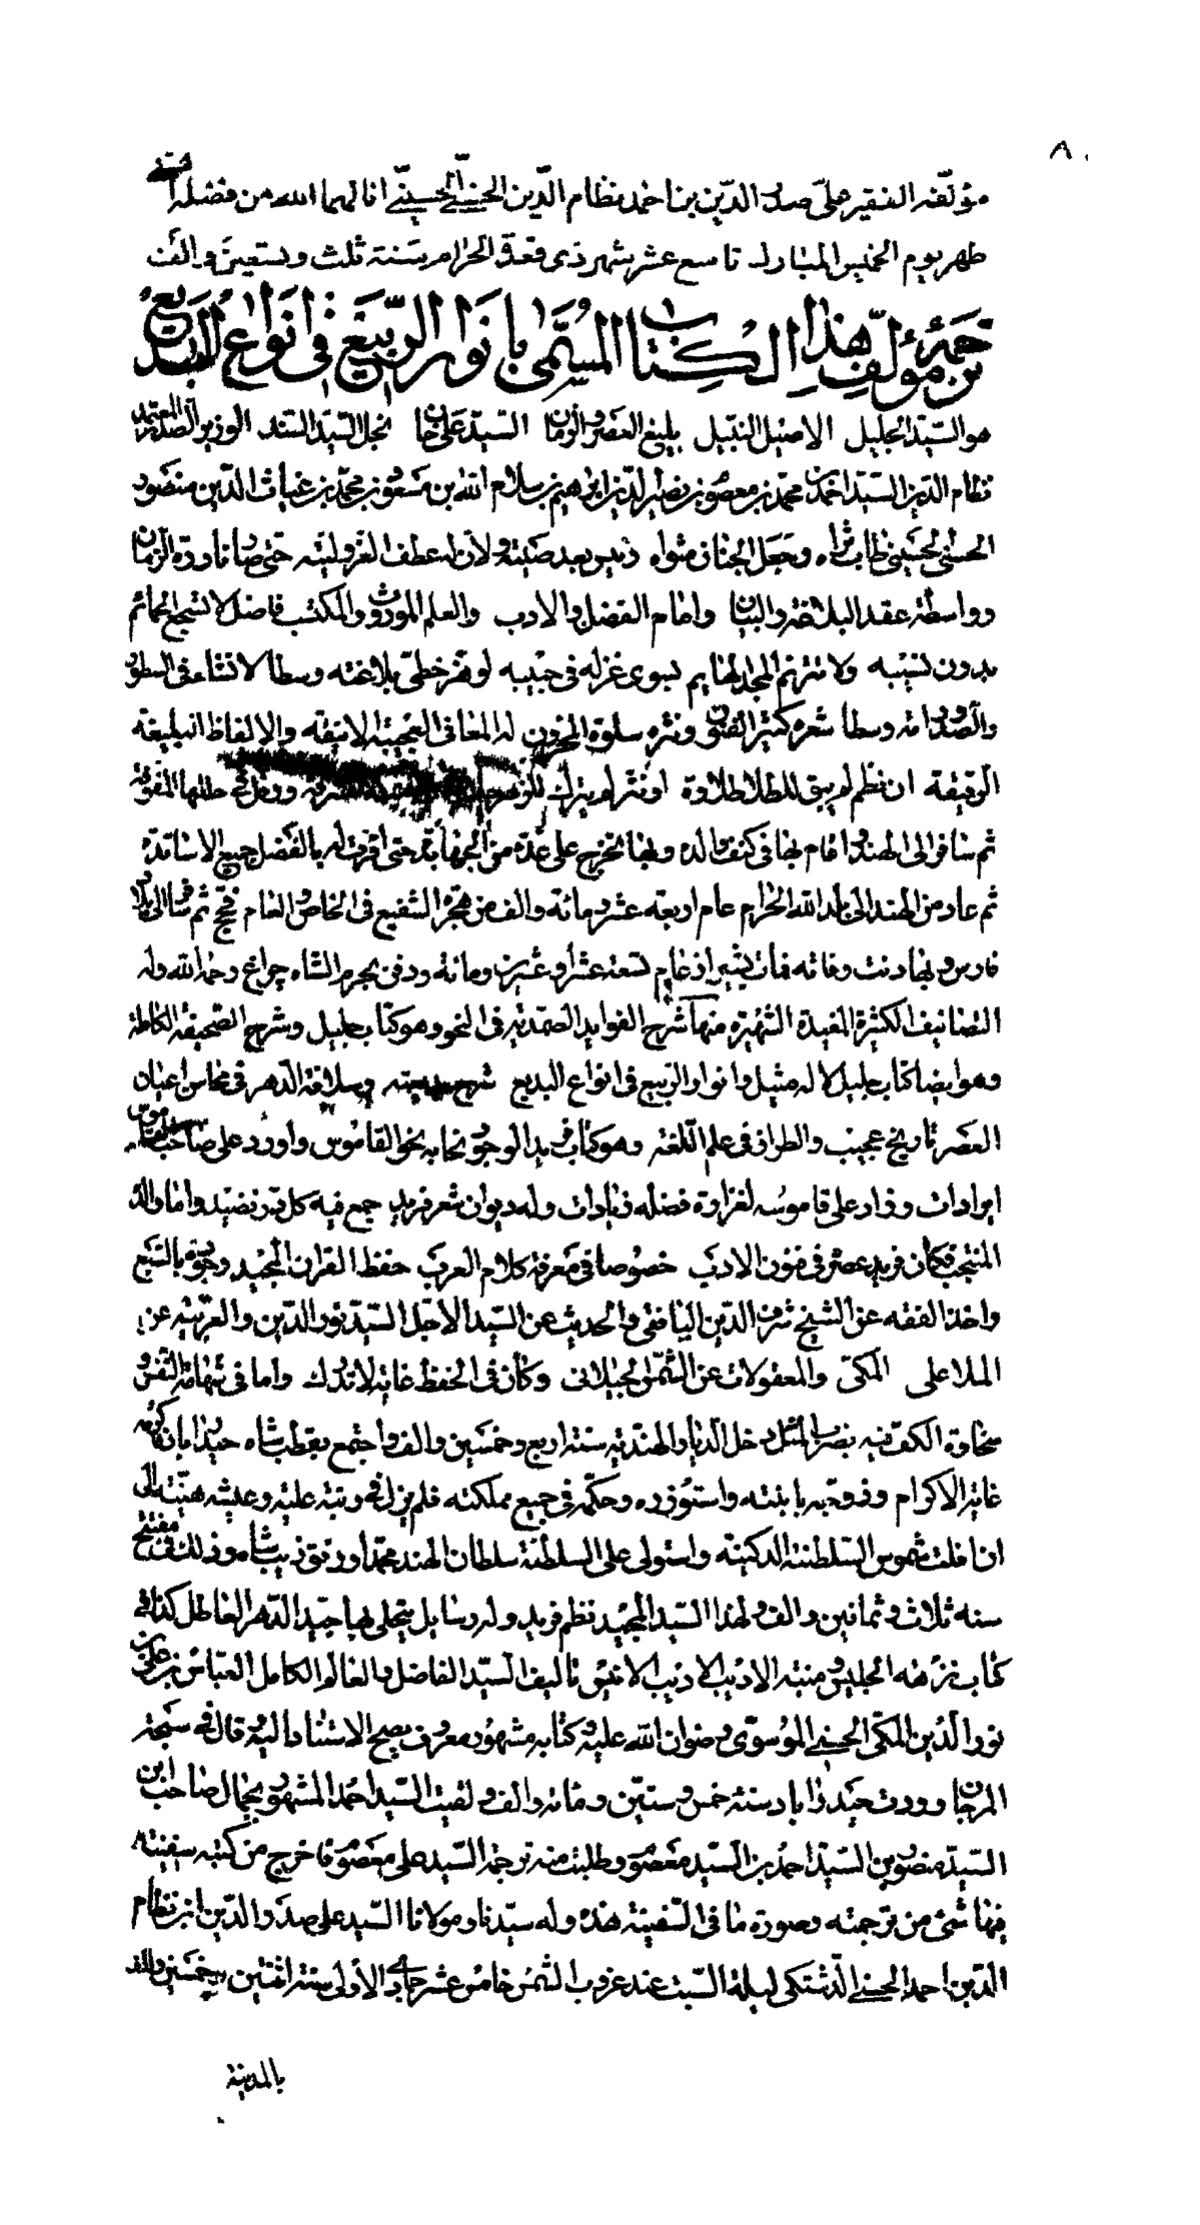 ٨
مؤلفه الفقير علي صدر الدين بن احمد نظام الدين الحسيني الحسني انالهما الله من فضله السني
ظهر يوم الخميس المبارك تاسع عشر شهر ذي قعدة الحرام سنة ثلث وتسعين والف
ترجمة مؤلف هذا الكتاب المسمى بانوار الربيع في انواع البديع
هو السيد الجليل الاصيل النبيل بليغ العصر والزمان السيد علي خان نجل السيد السند الوزير الصدر المعتمد
نظام الدين السيد احمد بن محمد بن معصوم بن نصير الدين ابراهيم بن سلام الله بن مسعود بن محمد بن غياث الدين منصور
الحسني الحسيني طاب ثراه وجعل الجنان مثواه رئيس بعد صيته ولان له عطف العز وليته حتى صار نادرة الزمان
وواسطة عقد البلاغة والبيان وامام الفضل والادب والعلم الموروث والمكتسب فاضل لا تسجع الحمائم
بدون نسيبه ولا تترنم لهايم بسوى غزله في حبيبه بلاغته وسطا في السطور
والصدور وسطا شعره كثير الفنون ونثره سلوة المحزون له المعاني العجيبة الانيقة والالفاظ البليغة
الرقيقة ان نظم لم يبق للطلا طلاوة او نثر لم يترك
ثم سافر الى الهند واقام بها في كنف والده وبها تخرج على عدة من الجهابذة حتى اقرت له بالفضل جميع الاساتذة
ثم عاد من الهند الى بلد الله الحرام عام اربعة عشر ومائة والف من هجرة الشفيع في الخاص والعام فحج ثم سافر الى بلاد
فارس وبها دنت وفاته فمات بشيراز عام تسعة عشر او عشرين ومائة ودفن بحرم الشاه چراغ رحمه الله وله
التصانيف الكثيرة المفيدة الشهيرة منها شرح الفوايد الصمدية في النحو وهو كتاب جليل وشرح الصحيفة الكاملة
وهو ايضا كتاب جليل لا له مثيل وانوار الربيع في انواع البديع شرح بديعيته وسلافة الدهر في محاسن اعيان
العصر تاريخ عجيب والطراز في علم اللغة وهو كتاب فريد الوجود نحا به نحو القاموس واورد على صاحب القاموس
ايرادات وزاد على قاموسه لغزارة فضله زيادات وله ديوان شعر فريد جمع فيه كل در نضيد واما والده
المنتجب فكان فريد عصره في فنون الادب خصوصا في معرفة كلام العرب حفظ القران المجيد وجوده بالسبع
واخذ الفقه عن الشيخ شرف الدين اليافعي والحديث عن السيد الاجل السيد نور الدين والعربية عن
الملا علي المكي والمعقولات عن الشمس الجيلاني وكان في الحفظ غاية لا تدرك واما في شهامة النفس و
سخاوة الكف فبه يضرب المثل دخل الديار الهندية سنة اربع وخمسين والف واجتمع بقطب شاه حيدراباد فاكرمه
غاية الاكرام وزوجه بابنته واستوزره وحكمه في جميع مملكته فلم يزل في رتبة علية وعيشة هنية الى
ان افلت شموس السلطنة الدكنية واستولى على السلطنة سلطان الهند محمد اورنق زيب شاه وذلك في مفتتح
سنة ثلاث وثمانين والف ولهذا السيد المجيد نظم فريد وله رسايل يتحلى بها جيد الدهر العاطل كذا في
كتاب نزهة الجليس ومنية الاديب الانيس تاليف السيد الفاضل والعالم الكامل العباس بن علي بن
نور الدين المكي الحسيني الموسوي رضوان الله عليه وكتابه مشهور معروف يصح الاستناد اليه وقال في سبحة
المرجان وردت حيدراباد سنة خمس وستين ومائة والف ولقيت السيد احمد المشهور ابن
السيد منصور بن السيد احمد بن السيد معصوم وطلبت منه ترجمة السيد علي معصوم فاخرج من كتبه سفينة
فيها شيء من ترجمته وصورة ما في السفينة هذه وله سيدنا ومولانا السيد علي صدر الدين ابن نظام
الدين احمد الحسيني الدشتكي ليلة السبت عند غروب الشمس خامس عشر جمادي الاولى سنة اثنتين وخمسين والف
بالمدينة